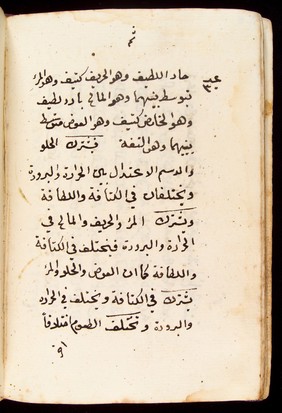 حاد اللطيف وهو الحريف كثيف وهو المر
متوسط بينهما وهو المالح بارد لطيف
وهو الحامض كثيف وهو العفص متوسط
بينهما وهو التفه فيشترك الحلو
والدسم الاعتدال بين الحرارة والبرودة
ويختلفان في الكثافة واللطافة
ويشترك المر والحريف والمالح في
الحرارة والبرودة فيختلف في الكثافة
واللطافة كما ان العفص والحلو والمر
يشترك في الكثافة ويختلف في الحرارة
والبرودة وتختلف الطعوم اختلافاً